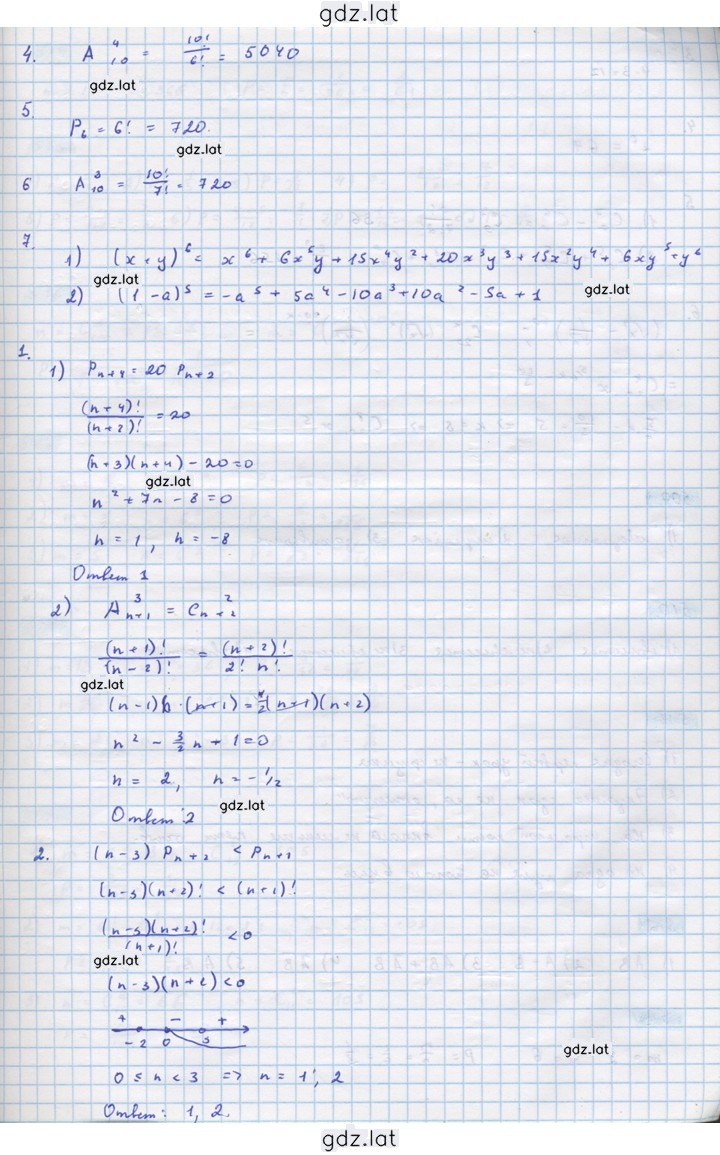 gdz.lat
4. A⁴₁₀ = 10!/6! = 5040
gdz.lat
5.
P₆ = 6! = 720.
gdz.lat
6 A³₁₀ = 10!/7! = 720
7.
1) (x+y)⁶ = x⁶ + 6x⁵y + 15x⁴y² + 20x³y³ + 15x²y⁴ + 6xy⁵ + y⁶
gdz.lat
2) (1-a)⁵ = -a⁵ + 5a⁴ - 10a³ + 10a² - 5a + 1
gdz.lat
1.
1) Pₙ₊₄ = 20 Pₙ₊₂
(n+4)!/(n+2)! = 20
(n+3)(n+4) - 20 = 0
gdz.lat
n² + 7n - 8 = 0
n = 1, n = -8
Ответ 1
2) A³ₙ₊₁ = C²ₙ₊₂
(n+1)!/(n-2)! = (n+2)!/2! n!
gdz.lat
(n-1)n·(n+1) = 1/2(n+1)(n+2)
n² - 3/2 n + 1 = 0
n = 2, n = -1/2
gdz.lat
Ответ: 2
2. (n-3) Pₙ₊₂ < Pₙ₊₁
(n-3)(n+2)! < (n+1)!
(n-3)(n+2)!/(n+1)! < 0
gdz.lat
(n-3)(n+2) < 0
+ - +
-2 0 3
gdz.lat
0 ≤ n < 3 => n = 1, 2
Ответ: 1, 2.
gdz.lat